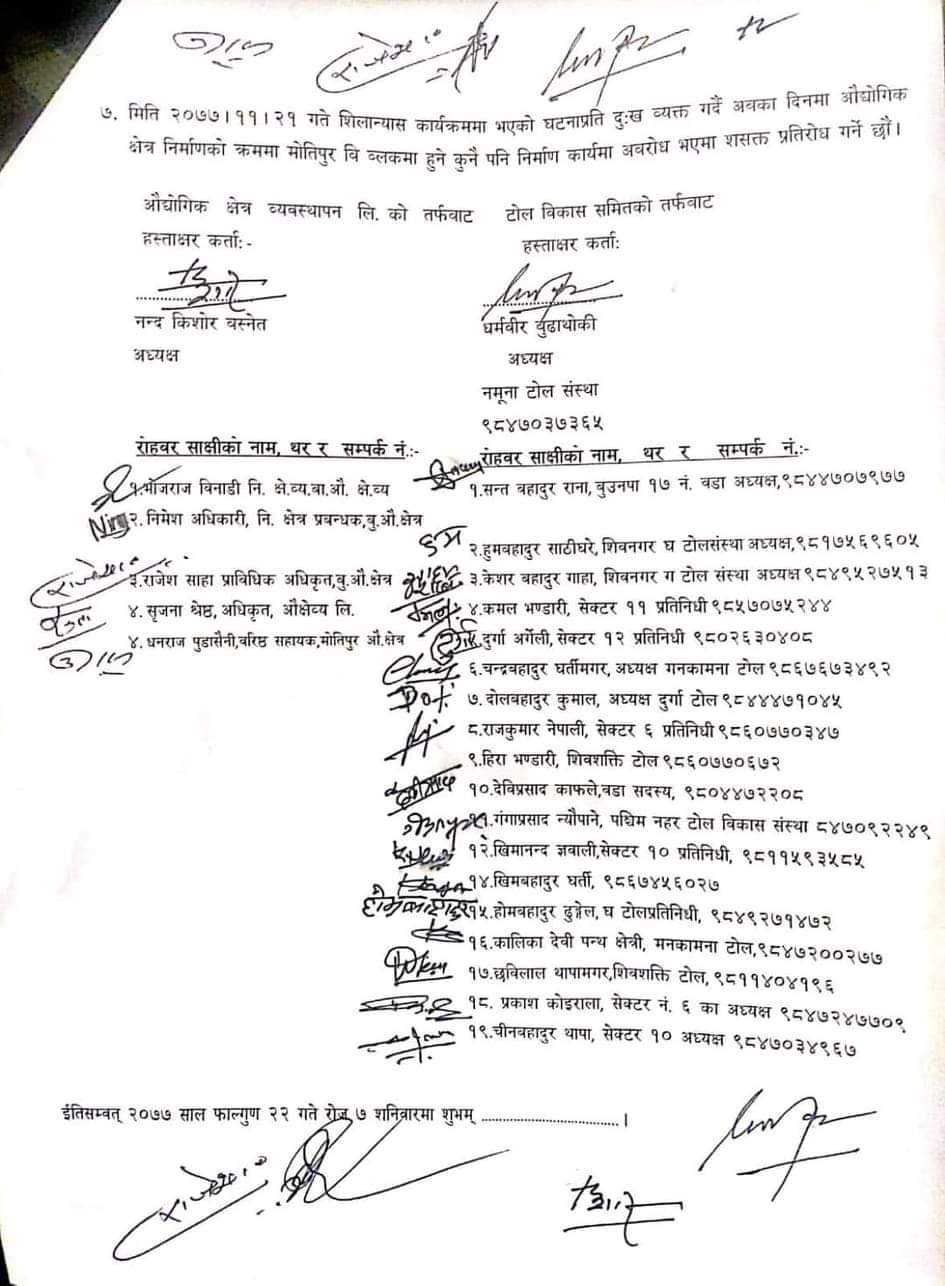 ७. मिति २०७७।११।२१ गते शिलान्यास कार्यक्रममा भएको घटनाप्रति दुःख व्यक्त गर्दै अबका दिनमा औद्योगिक
क्षेत्र निर्माणको क्रममा मोतिपुर वि ब्लकमा हुने कुनै पनि निर्माण कार्यमा अवरोध भएमा शसक्त प्रतिरोध गर्ने छौं।
औद्योगिक क्षेत्र व्यवस्थापन लि. को तर्फवाट
हस्ताक्षर कर्ताः-
नन्द किशोर वस्नेत
अध्यक्ष
टोल विकास समितको तर्फवाट
हस्ताक्षर कर्ताः
धर्मवीर वुढाथोकी
अध्यक्ष
नमूना टोल संस्था
९८४७०३७३६५
रोहवर साक्षीको नाम, थर र सम्पर्क नं.:-
१.भोजराज विनाडी नि. क्षे.व्य.वा.औ. क्षे.व्य
२. निमेश अधिकारी, नि. क्षेत्र प्रबन्धक,वु.औ.क्षेत्र
३.राजेश साहा प्राविधिक अधिकृत,बु.औ.क्षेत्र
४. सृजना श्रेष्ठ, अधिकृत, औक्षेव्य लि.
४. धनराज पुडासैनी,वरिष्ठ सहायक,मोतिपुर औ.क्षेत्र
रोहवर साक्षीको नाम, थर र सम्पर्क नं.:-
१.सन्त बहादुर राना, बुउनपा १७ नं. वडा अध्यक्ष,९८४४७०७९७७
२.हुमबहादुर साठीघरे, शिवनगर घ टोलसंस्था अध्यक्ष,९८१७५६९६०५
३.केशर बहादुर गाहा, शिवनगर ग टोल संस्था अध्यक्ष ९८४९५२७५१३
४.कमल भण्डारी, सेक्टर ११ प्रतिनिधी ९८५७०७५२४४
दुर्गा अर्गेली, सेक्टर १२ प्रतिनिधी ९८०२६३०४०८
६.चन्द्रबहादुर घर्तीमगर, अध्यक्ष गनकामना टोल ९८६७६७३४९२
७. दोलबहादुर कुमाल, अध्यक्ष दुर्गा टोल ९८४४४७१०४५
८.राजकुमार नेपाली, सेक्टर ६ प्रतिनिधी ९८६०७७०३४७
९.हिरा भण्डारी, शिवशक्ति टोल ९८६०७७०६७२
१०.देविप्रसाद काफले,वडा सदस्य, ९८०४४७२२०८
११.गंगाप्रसाद न्यौपाने, पश्चिम नहर टोल विकास संस्था ८४७०९२२४९
१२.खिमानन्द ज्ञवाली,सेक्टर १० प्रतिनिधी, ९८११५९३५८५
१४.खिमबहादुर घर्ती, ९८६७४५६०२७
१५.होमबहादुर ढुङ्गेल, घ टोलप्रतिनिधी, ९८४९२७१४७२
१६.कालिका देवी पन्थ क्षेत्री, मनकामना टोल,९८४७२००२७७
१७.छविलाल थापामगर,शिवशक्ति टोल, ९८११४०४१९६
१८. प्रकाश कोइराला, सेक्टर नं. ६ का अध्यक्ष ९८४७२४७७०९
१९.चीनबहादुर थापा, सेक्टर १० अध्यक्ष ९८४७०३४९६७
ईतिसम्वत् २०७७ साल फाल्गुण २२ गते रोज ७ शनिवारमा शुभम् ..................................।